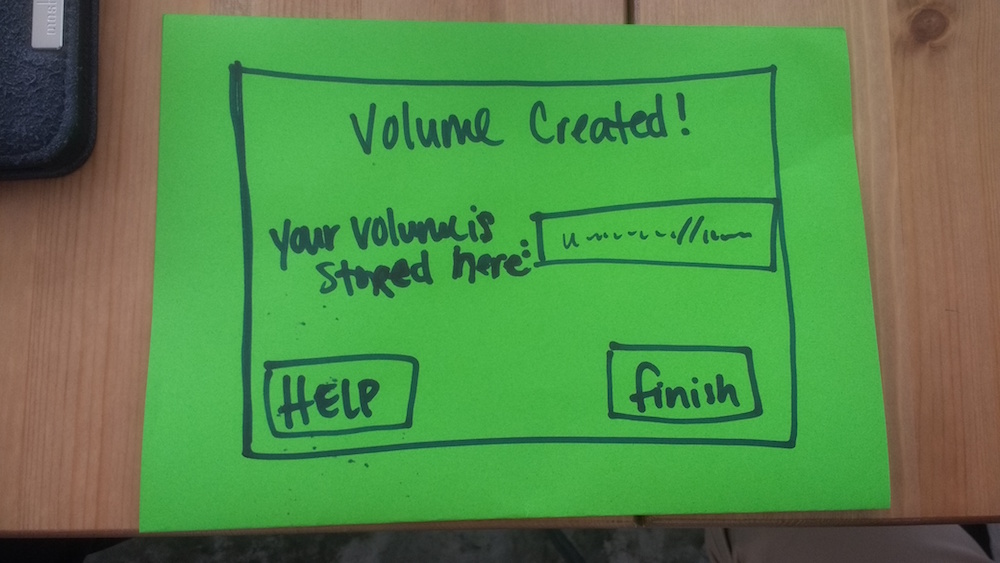 Volume Created!
Your Volume is
stored here:
HELP
finish